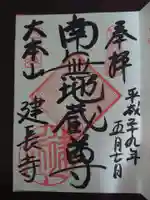 奉拝
平成十九年
五月七日
南無地蔵尊
大本山
建長寺